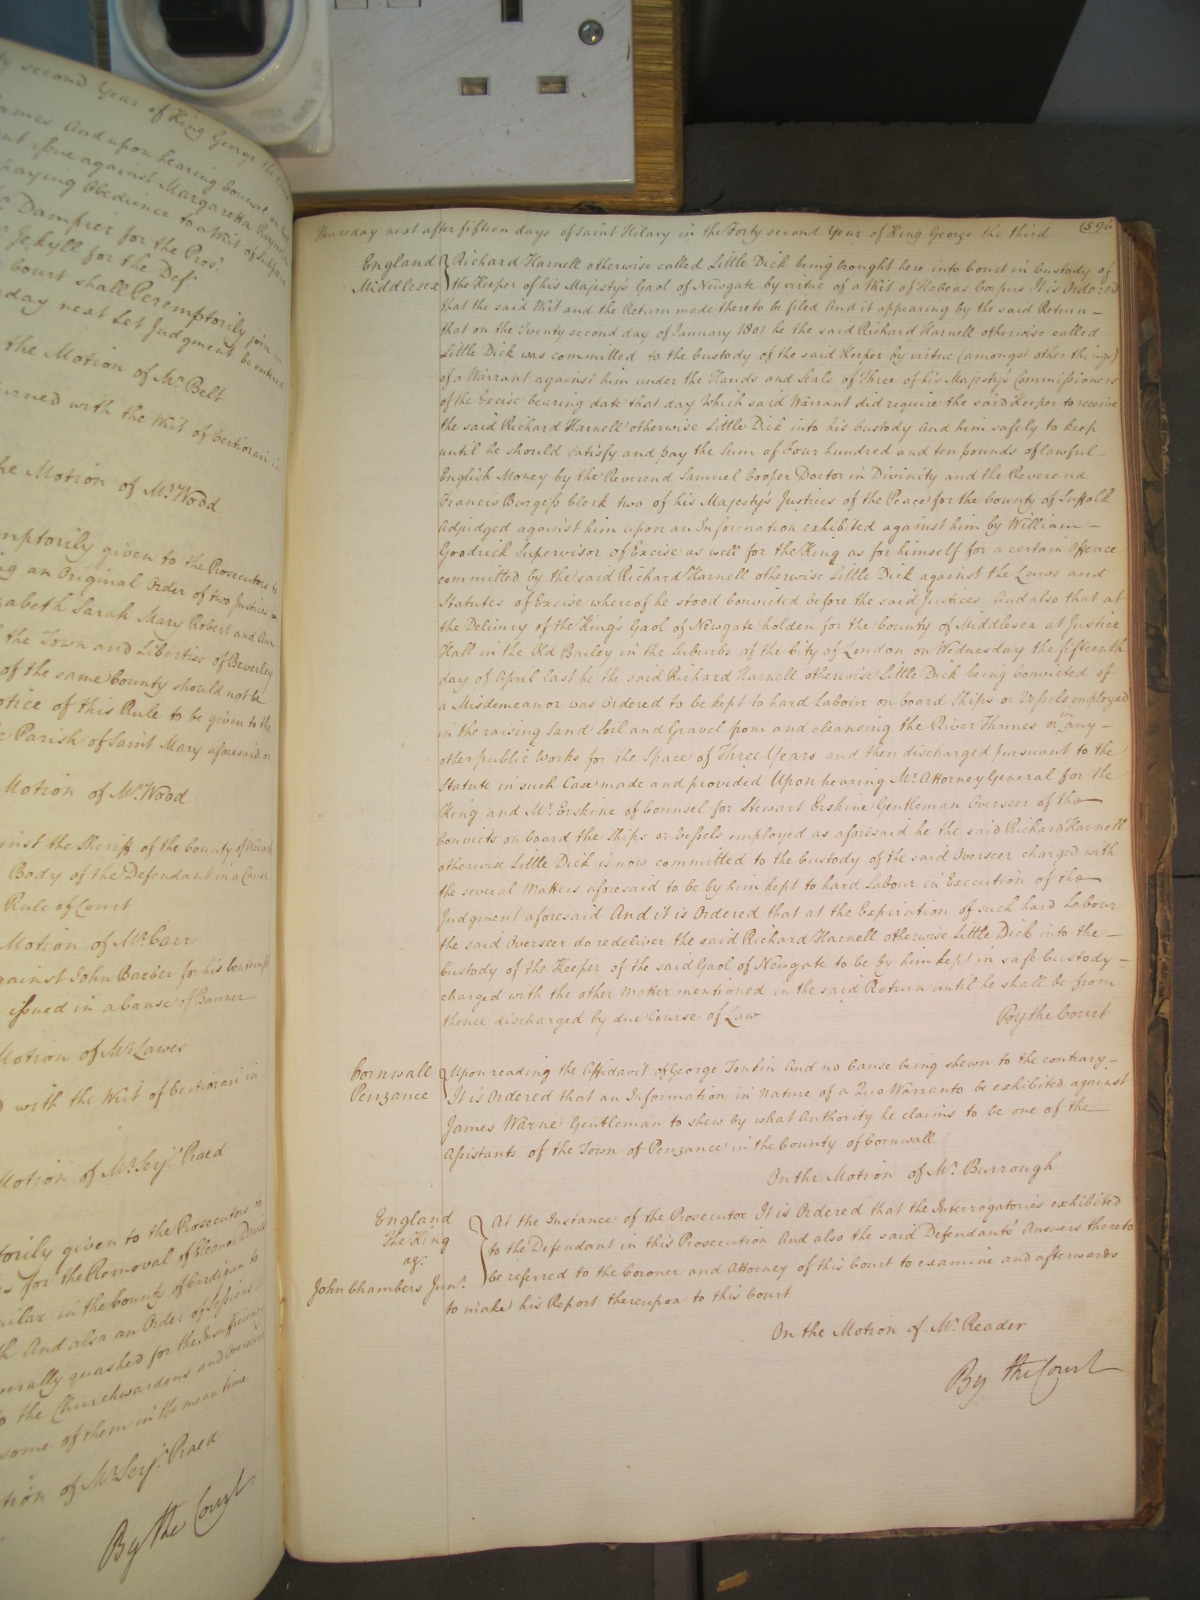 ty second Year of King George the third
James And upon hearing Counsel on
issue against Margaretta
paying Obedience to a Writ of
Dampier for the Pros.r
Jekyll for the Def.t
Court shall Peremptorily join in
day next Let Judgment be entered
the Motion of Mr. Belt
urned with the Writ of Certiorari in
he Motion of Mr. Wood
mptorily given to the Prosecutors to
ng an Original Order of two Justices
zabeth Sarah Mary Robert and Ann
the Town and Liberties of Beverley
of the same County should not be
otice of this Rule to be given to the
Parish of Saint Mary aforesaid or
Motion of Mr. Wood
inst the Sheriff of the County of
Body of the Defendant in a Cause
Rule of Court
Motion of Mr. Carr
gainst John Barber for his Contempt
issued in a Cause of Banner
Motion of Mr. Lawes
with the Writ of Certiorari in
Motion of Mr. Serj.t Praed
torily given to the Prosecutors to
for the Removal of Eleanor David
in the County of Cardigan to
And also an Order of Sessions
quashed for the Insufficiency
to the Churchwardens and Overseers
some of them in the mean time
tion of Mr. Serj.t Praed
By the Court
Thursday next after fifteen days of Saint Hilary in the Forty second Year of King George the third
(596
England
Middlesex
Richard Harnell otherwise called Little Dick being brought here into Court in Custody of
the Keeper of his Majesty's Gaol of Newgate by virtue of a Writ of Habeas Corpus It is Ordered
that the said Writ and the Return made thereto be filed And it appearing by the said Return –
that on the Twenty second day of January 1801 he the said Richard Harnell otherwise called
Little Dick was committed to the Custody of the said Keeper by virtue (amongst other things)
of a Warrant against him under the Hands and Seals of Three of his Majesty's Commissioners
of the Excise bearing date that day Which said Warrant did require the said Keeper to receive
the said Richard Harnell otherwise Little Dick into his Custody And him safely to keep
until he should satisfy and pay the Sum of Four hundred and ten pounds of lawful –
English Money by the Reverend Samuel Cooper Doctor in Divinity and the Reverend
Francis Burgess Clerk two of his Majesty's Justices of the Peace for the County of Suffolk
Adjudged against him upon an Information exhibited against him by William –
Goodrick Supervisor of Excise as well for the King as for himself for a certain Offence
committed by the said Richard Harnell otherwise Little Dick against the Laws and
Statutes of Excise whereof he stood Convicted before the said Justices And also that at
the Delivery of the King's Gaol of Newgate holden for the County of Middlesex at Justice
Hall in the Old Bailey in the Suburbs of the City of London on Wednesday the fifteenth
day of April last he the said Richard Harnell otherwise Little Dick being convicted of
a Misdemeanor was Ordered to be kept to hard Labour on board Ships or Vessels employed
in the raising Sand Soil and Gravel from and cleansing the River Thames or in any –
other public Works for the Space of Three Years and then discharged pursuant to the
Statute in such Case made and provided Upon hearing Mr. Attorney General for the
King and Mr. Erskine of Counsel for Stewart Erskine Gentleman Overseer of the
Convicts on board the Ships or Vessels employed as aforesaid he the said Richard Harnell
otherwise Little Dick is now committed to the Custody of the said Overseer charged with
the several Matters aforesaid to be by him kept to hard Labour in Execution of the
Judgment aforesaid And it is Ordered that at the Expiration of such hard Labour
the said Overseer do redeliver the said Richard Harnell otherwise Little Dick into the –
Custody of the Keeper of the said Gaol of Newgate to be by him kept in safe Custody –
charged with the other Matter mentioned in the said Return until he shall be from
thence discharged by due Course of Law
By the Court
Cornwall
Penzance
Upon reading the Affidavit of George Tonkin And no Cause being shewn to the contrary –
It is Ordered that an Information in Nature of a Quo Warranto be exhibited against
James Warne Gentleman to shew by what Authority he claims to be one of the
Assistants of the Town of Penzance in the County of Cornwall
On the Motion of Mr. Burrough
England
The King
ag.t
John Chambers Jun.r
At the Instance of the Prosecutor It is Ordered that the Interrogatories exhibited
to the Defendant in this Prosecution And also the said Defendants' Answers thereto
be referred to the Coroner and Attorney of this Court to examine and afterwards
to make his Report thereupon to this Court
On the Motion of Mr. Reader
By the Court